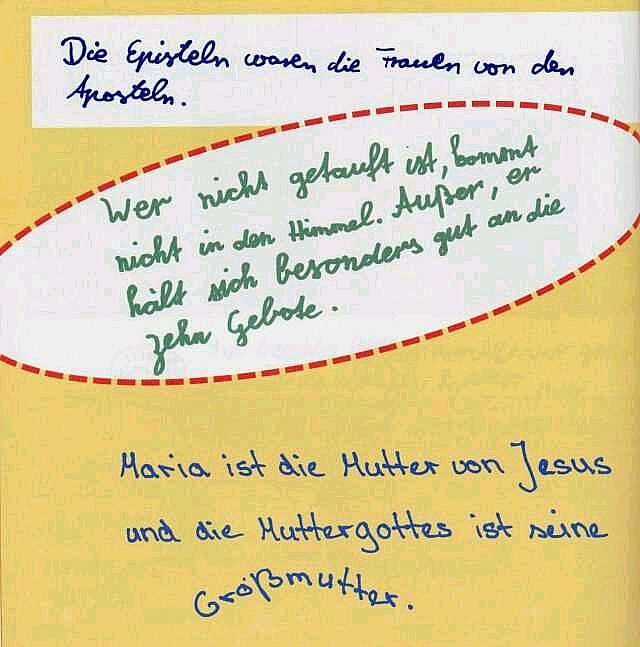 Die Episteln waren die Frauen von den
Aposteln.
Wer nicht getauft ist, kommt
nicht in den Himmel. Außer, er
hält sich besonders gut an die
zehn Gebote.
Maria ist die Mutter von Jesus
und die Muttergottes ist seine
Größmutter.